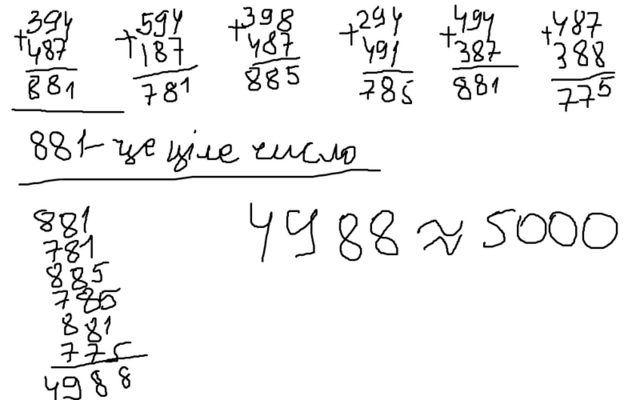 394 594 398 294 494 487
+487 +187 +487 +491 +387 +388
881 781 885 785 881 775
881 - це ціле число
881
781
885
785
881
775
4988
4988 ≈ 5000